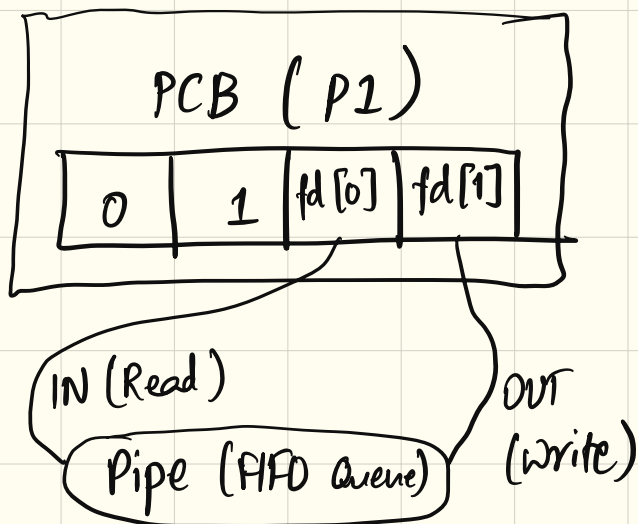 PCB (P1)
0 1 fd[0] fd[1]
IN (Read)
OUT
(Write)
Pipe (FIFO Queue)